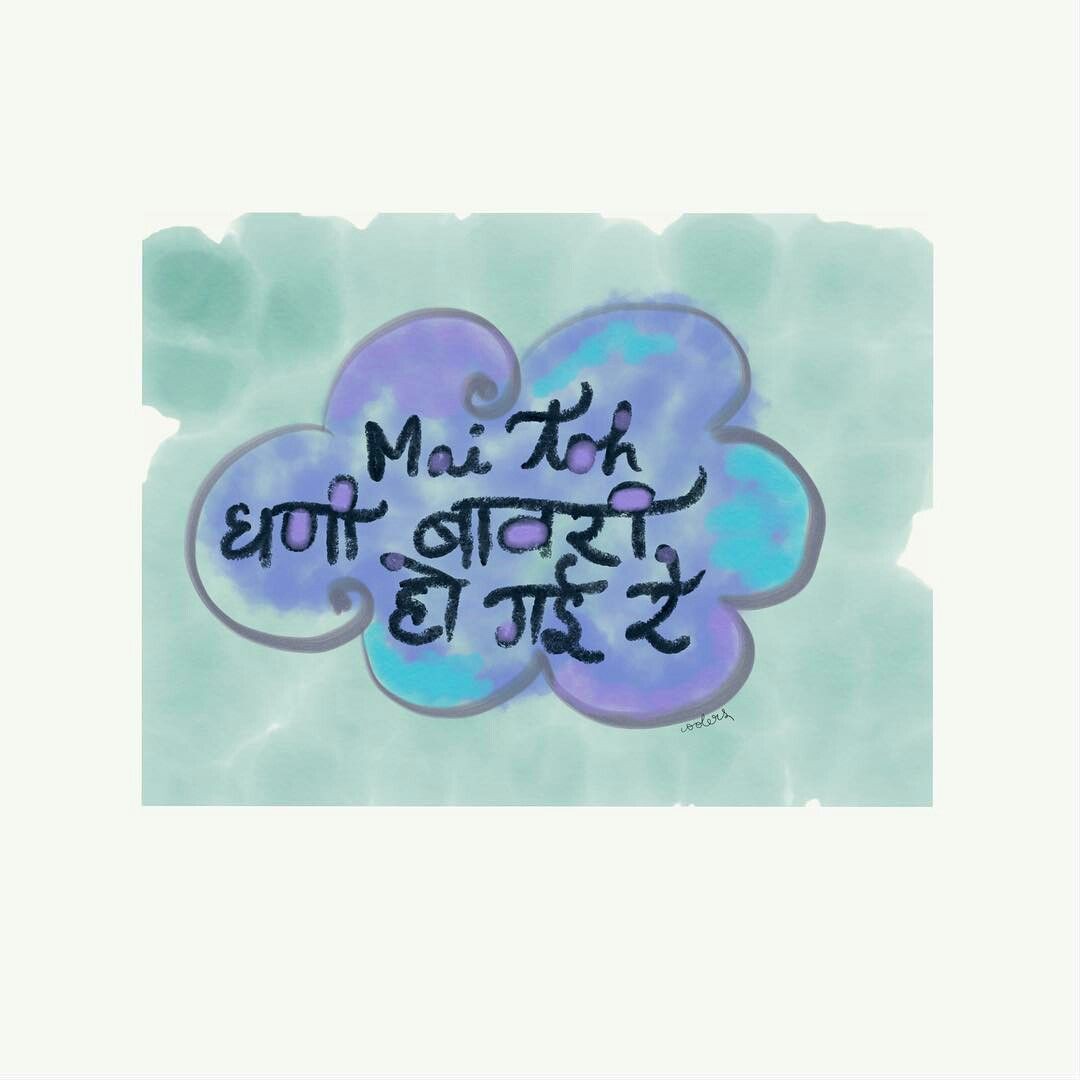 Mai Toh
धणी बावरी
हो गई रे
coders